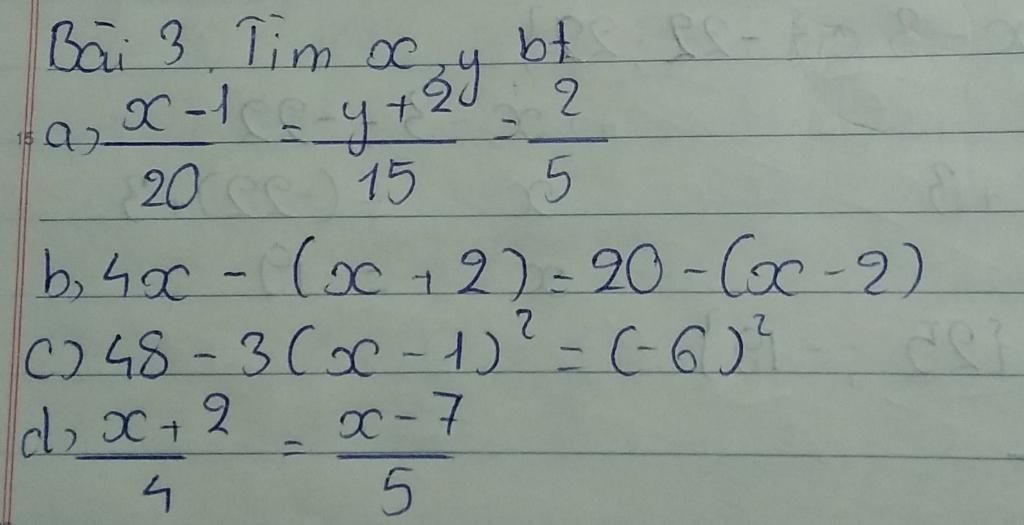 Bài 3. Tìm x, y bt
a, x - 1 / 20 = y + 2 / 15 = 2 / 5
b, 4x - (x + 2) = 20 - (x - 2)
c) 48 - 3(x - 1)² = (-6)²
d, x + 2 / 4 = x - 7 / 5